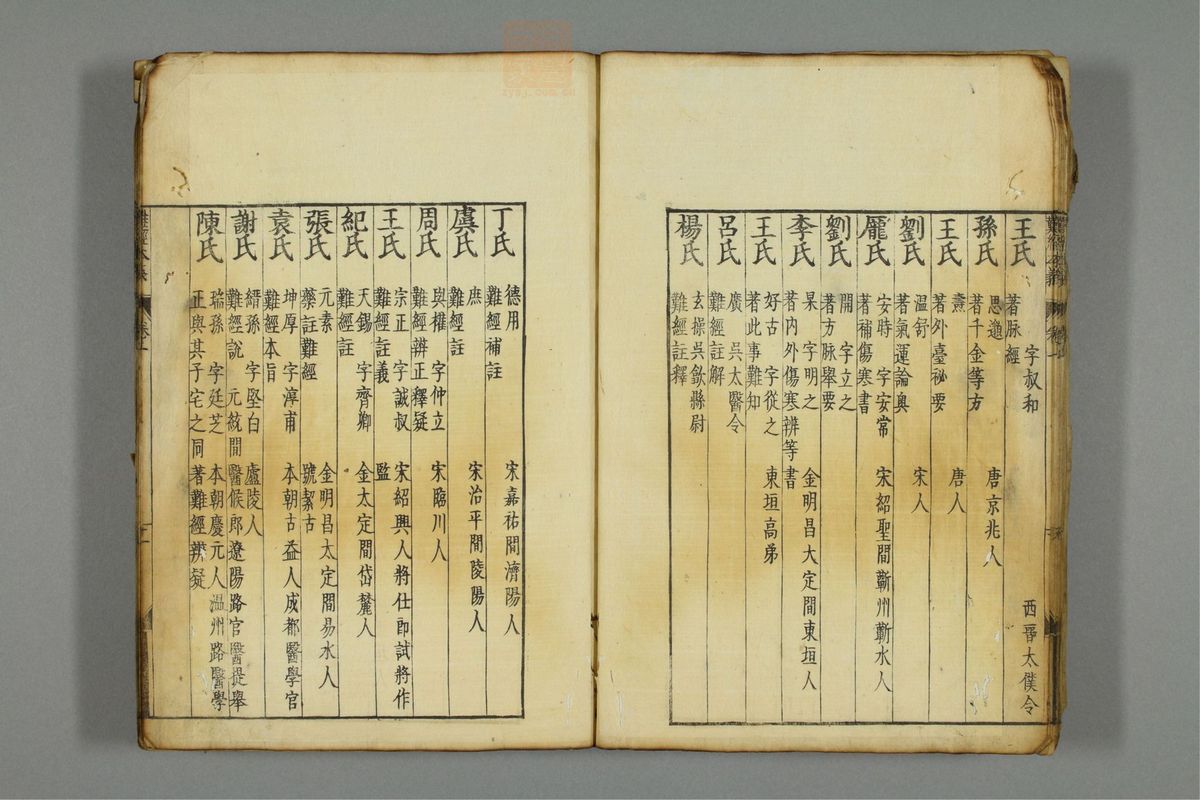 王氏 字叔和 西晉太僕令
著脉經
孫氏 思邈 唐京兆人
著千金等方
王氏 燾 唐人
著外臺祕要
劉氏 溫舒 宋人
著氣運論奥
龐氏 安時 字安常 宋紹聖間蘄州蘄水人
著補傷寒書
劉氏 開 字立之
著方脉舉要
李氏 杲 字明之 金明昌大定間東垣人
著内外傷寒辨等書
王氏 好古 字從之 東垣高弟
著此事難知
呂氏 廣 吳太醫令
難經註解
楊氏 玄操 吳歙縣尉
難經註釋
丁氏 德用 宋嘉祐間濟陽人
難經補註
虞氏 庶 宋治平間陵陽人
難經註
周氏 與權 字仲立 宋臨川人
難經辨正釋疑
王氏 宗正 字誠叔 宋紹興人將仕郎試將作
難經註義 監
紀氏 天錫 字齊卿 金太定間岱麓人
難經註
張氏 元素 金明昌太定間易水人
藥註難經 號潔古
袁氏 坤厚 字淳甫 本朝古益人成都醫學官
難經本旨
謝氏 縉孫 字堅白 廬陵人
難經說 元統間醫候郎遼陽路官醫提舉
陳氏 瑞孫 字廷芝 本朝慶元人溫州路醫學
正與其子宅之同著難經辨疑
難經本義 卷
zysj.com.cn